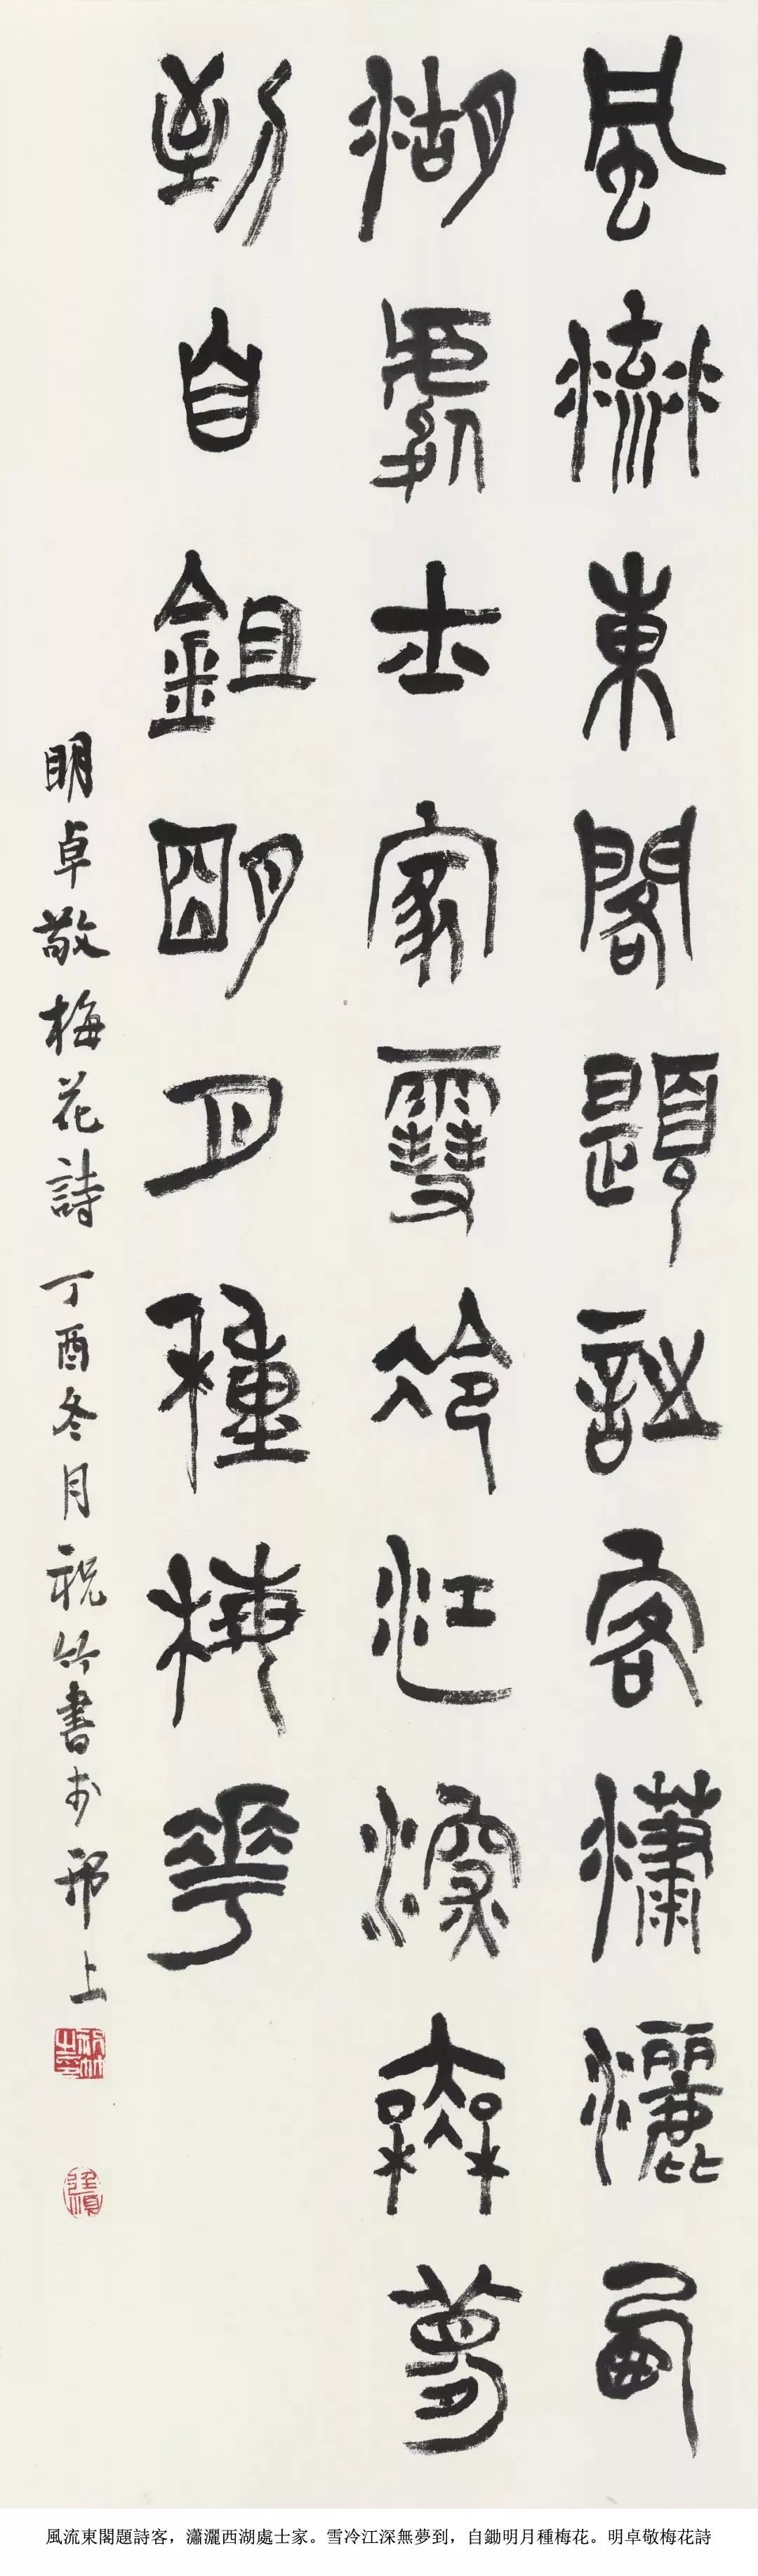 風流東閣題詩客瀟灑西
湖處士家雪冷江深無夢
到自鉏明月種梅花
明卓敬梅花詩 丁酉冬月祝竹書於邗上
風流東閣題詩客，瀟灑西湖處士家。雪冷江深無夢到，自鋤明月種梅花。明卓敬梅花詩